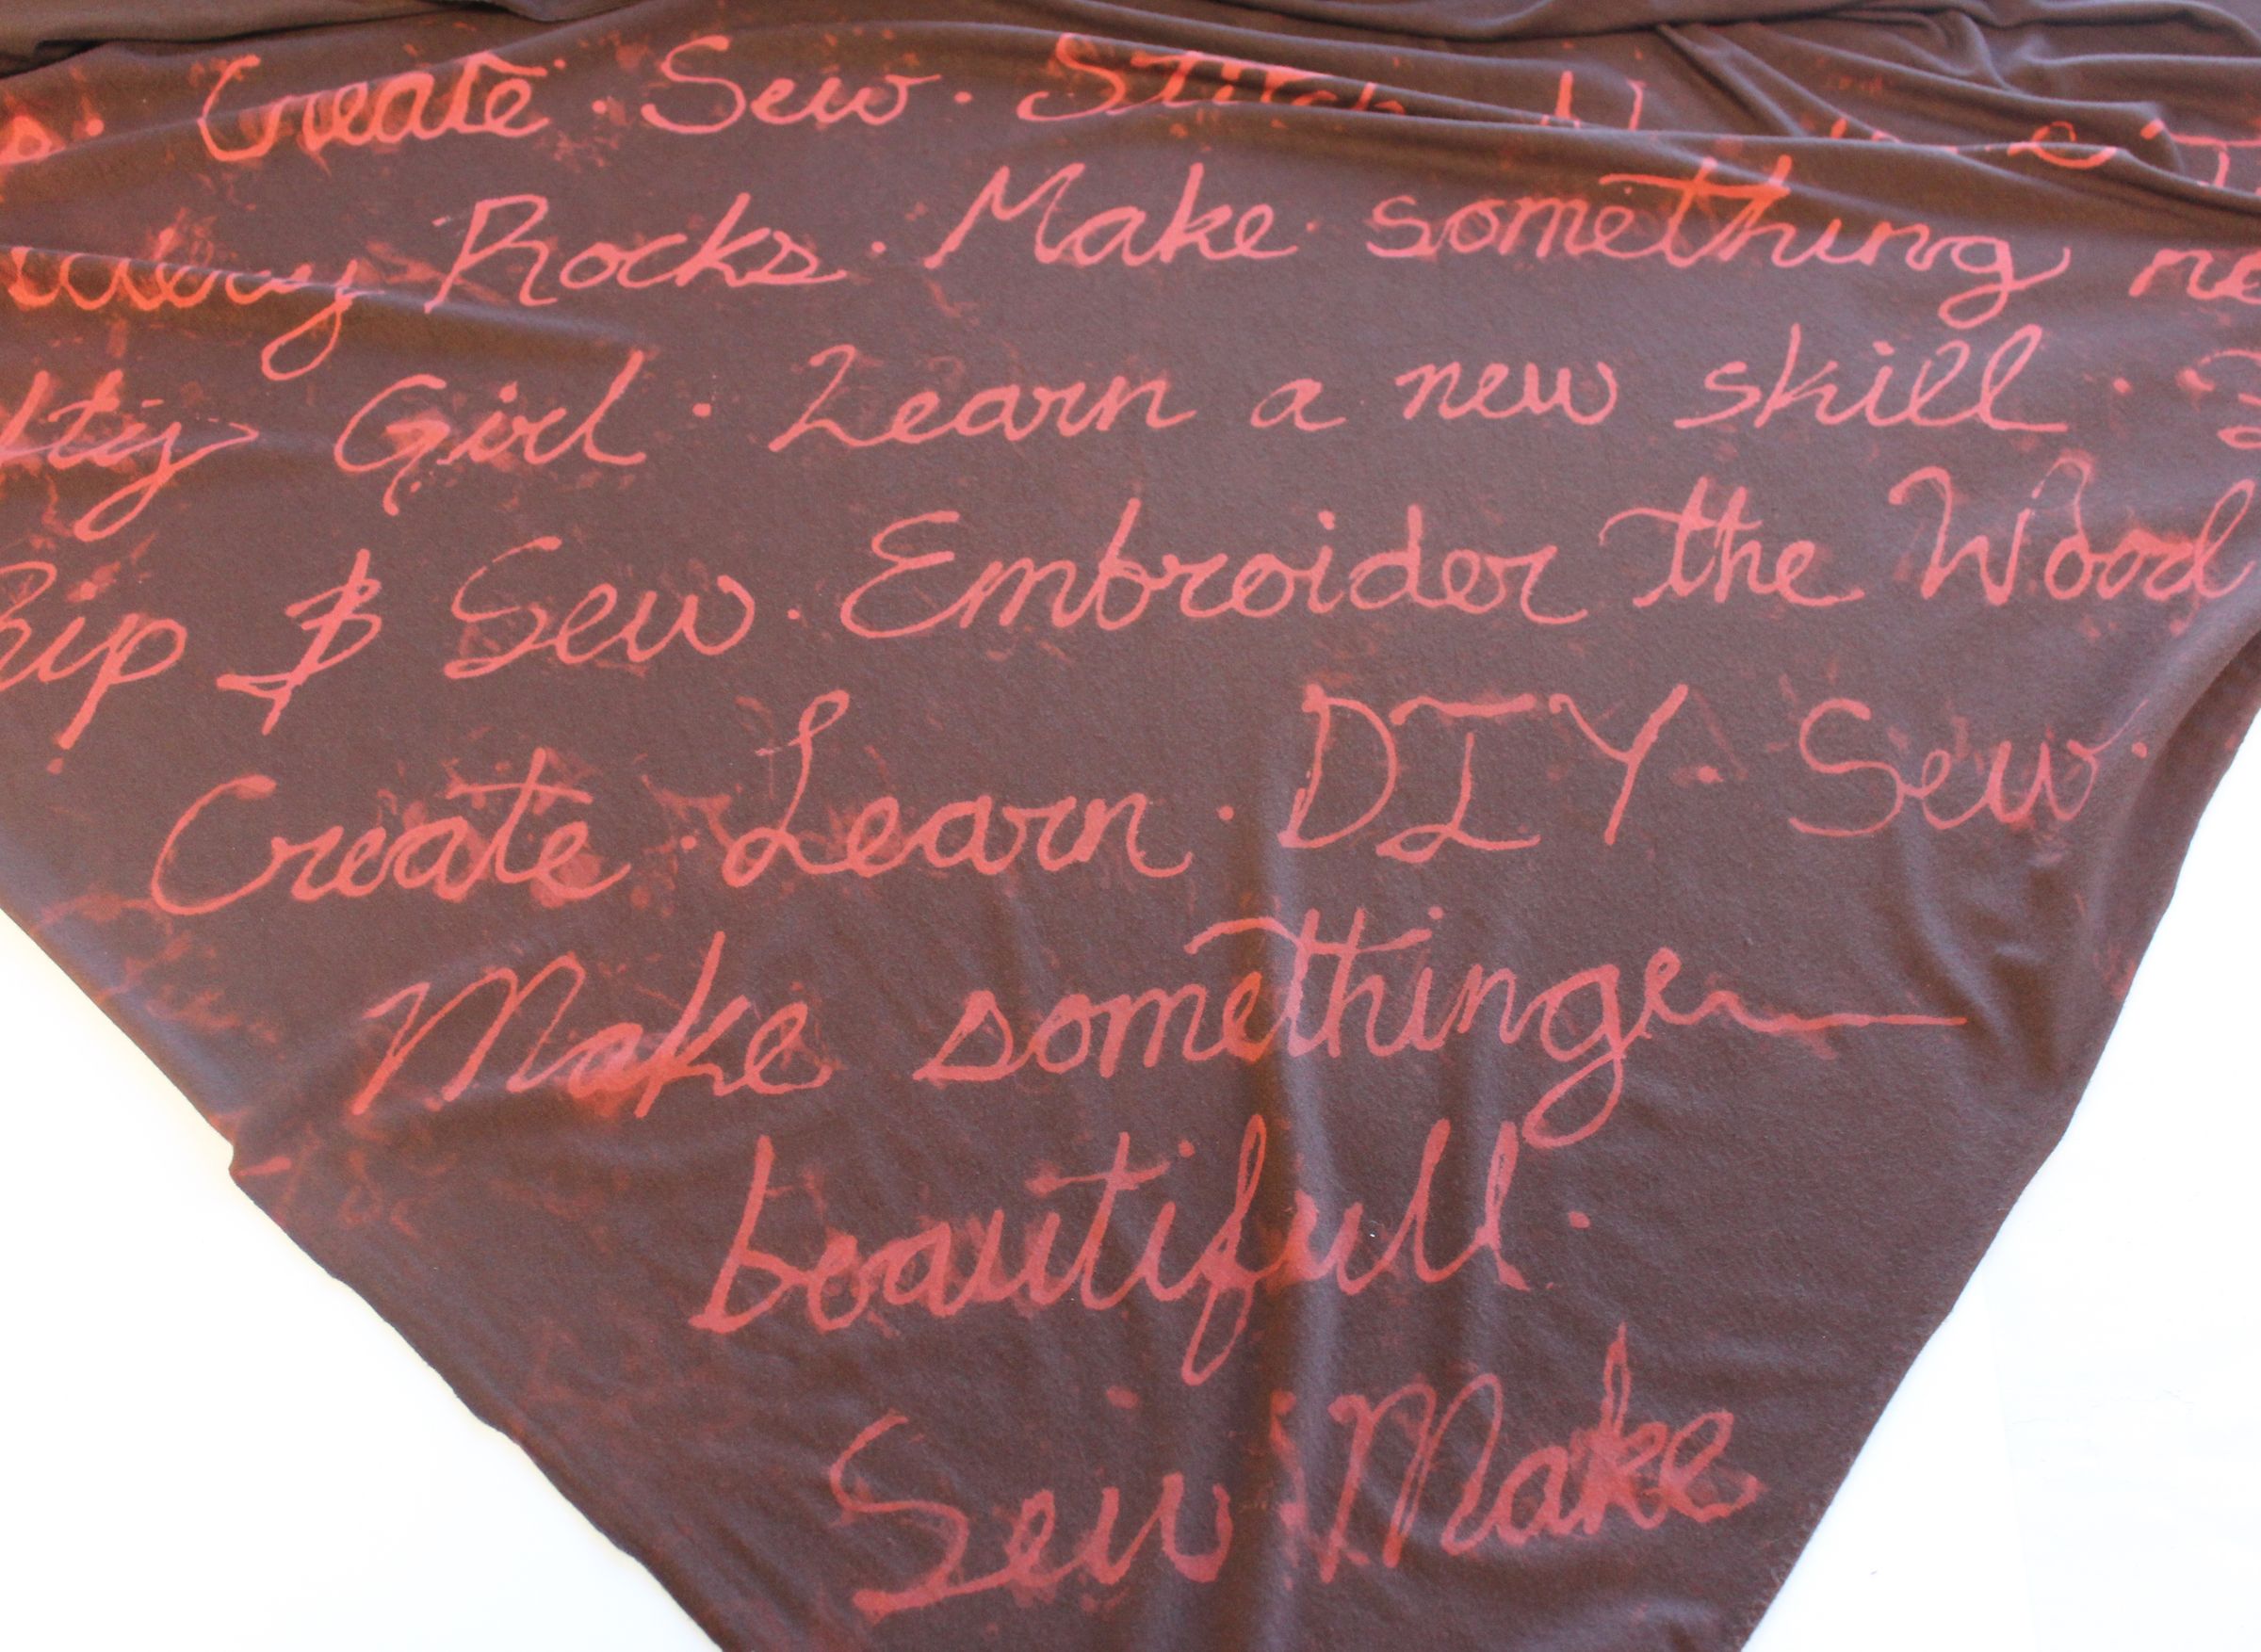 Create · Sew · Stitch
Rocks · Make something
Girl · Learn a new skill ·
& Sew · Embroider the Wood
Create · Learn · DIY · Sew ·
Make somethinge
beautifull ·
Sew Make